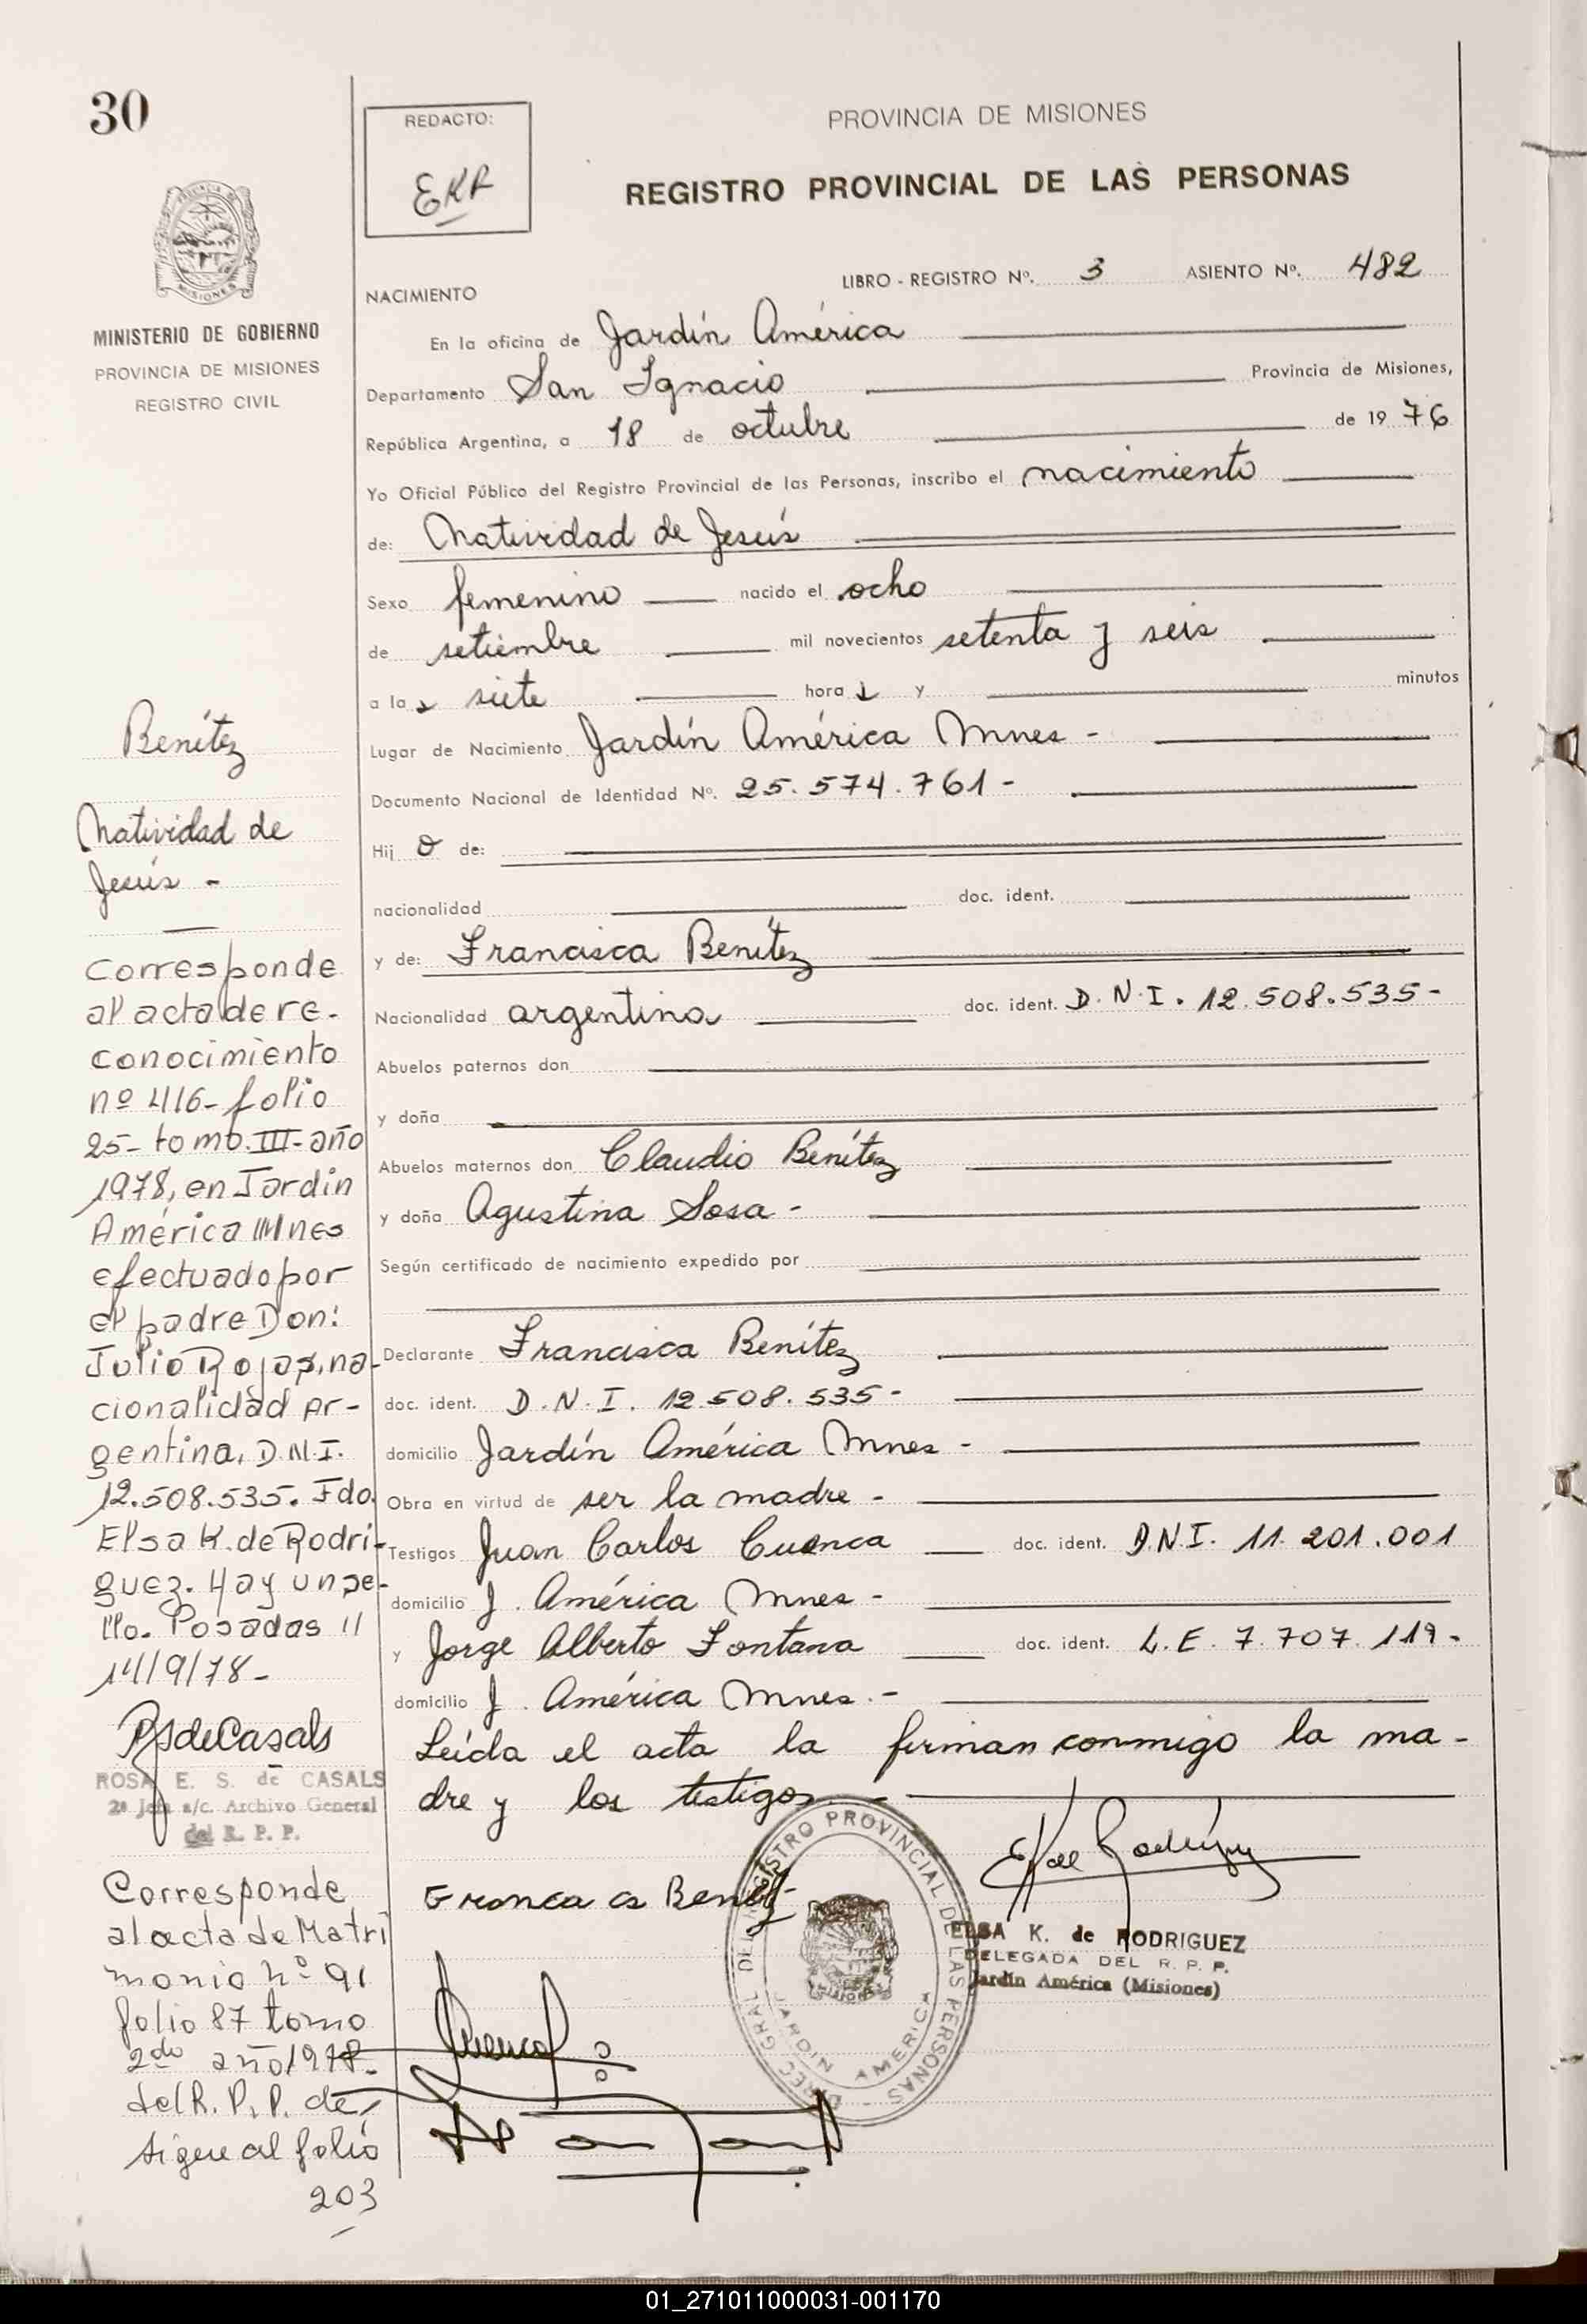 30
REDACTO:
EKR
PROVINCIA DE MISIONES
REGISTRO PROVINCIAL DE LAS PERSONAS
MISIONES
MINISTERIO DE GOBIERNO
PROVINCIA DE MISIONES
REGISTRO CIVIL
LIBRO - REGISTRO Nº. 3 ASIENTO Nº. 482
NACIMIENTO
En la oficina de Jardín América
Departamento San Ignacio Provincia de Misiones,
República Argentina, a 18 de octubre de 1976
Yo Oficial Público del Registro Provincial de las Personas, inscribo el nacimiento
de: Natividad de Jesús
Sexo femenino nacido el ocho
de setiembre mil novecientos setenta y seis
a las siete horas y minutos
Lugar de Nacimiento Jardín América Mnes -
Documento Nacional de Identidad Nº. 25.574.761-
Hija de:
nacionalidad doc. ident.
y de: Francisca Benítez
Nacionalidad argentina doc. ident. D.N.I. 12.508.535-
Abuelos paternos don
y doña
Abuelos maternos don Claudio Benítez
y doña Agustina Sosa -
Según certificado de nacimiento expedido por
Declarante Francisca Benítez
doc. ident. D.N.I. 12.508.535-
domicilio Jardín América Mnes -
Obra en virtud de ser la madre -
Testigos Juan Carlos Cuenca doc. ident. D.N.I. 11.201.001
domicilio J. América Mnes -
y Jorge Alberto Fontana doc. ident. L.E. 7.707.119-
domicilio J. América Mnes.-
Leída el acta la firman conmigo la ma-
dre y los testigos -
Benítez
Natividad de
Jesús -
Corresponde
al acta de re-
conocimiento
nº 416- folio
25- tomo. III- año
1978, en Jardín
América Mnes
efectuado por
el padre Don:
Julio Rojas, na-
cionalidad Ar-
gentina, D.N.I.
12.508.535. Fdo.
Elsa K. de Rodri-
guez. Hay un se-
llo. Posadas 11
14/9/78-
RSdeCasals
ROSA E. S. de CASALS
2ª Jefa a/c. Archivo General
del R. P. P.
Corresponde
al acta de Matri
monio nº 91
folio 87 tomo
2do año 1978-
del R. P. P. de,
sigue al folio
203
EKde Rodríguez
ELSA K. de RODRIGUEZ
DELEGADA DEL R. P. P.
Jardín América (Misiones)
DIREC. GRAL. DEL REGISTRO PROVINCIAL DE LAS PERSONAS
JARDIN AMERICA
Cuenca
01_271011000031-001170